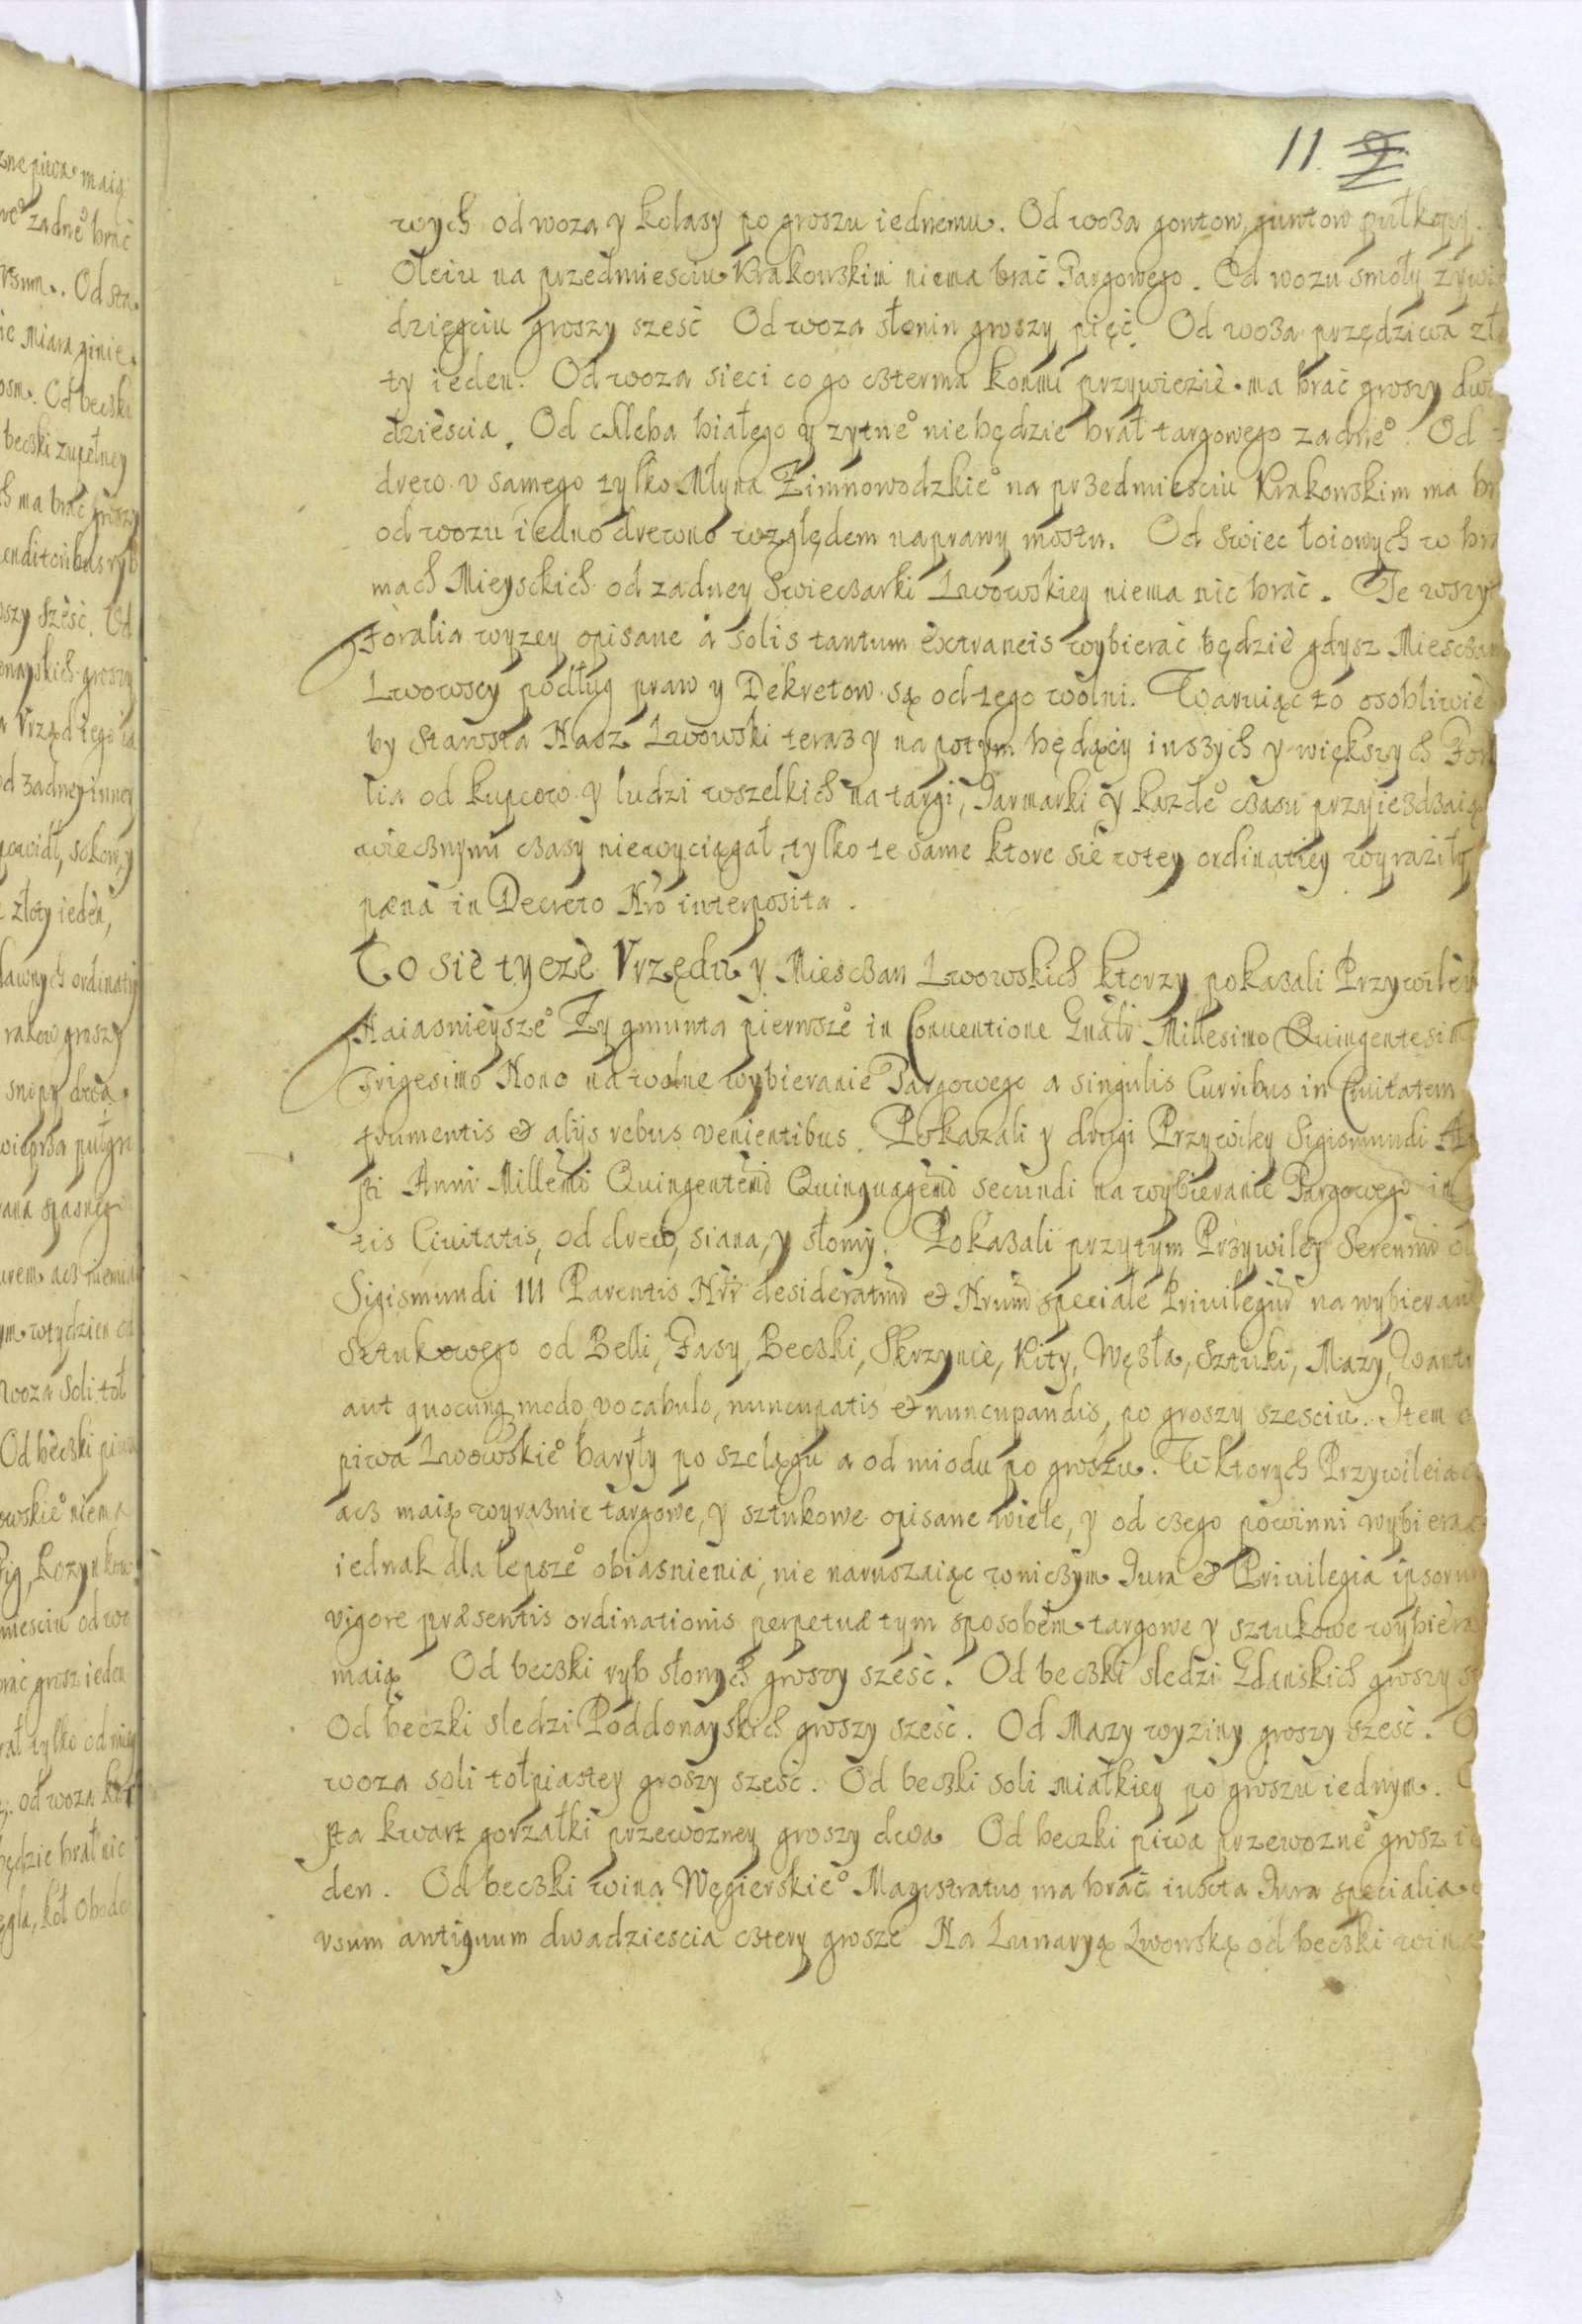 11. 9
wych od woza y kolasy po groszu iednemu. Od woза gontow, guntow pułkopy.
Oleiu na przedmiesciu Krakowskim niema brać Targowego. Od wozu smoły żywi
dzięgciu groszy sześć Od woza słonin groszy pięć. Od woza przędziwa zło
ty ieden. Od woza sieci co go czterma końmi przywiezie ma brać groszy dwa
dziescia. Od chleba białego y zytne° niebędzie brał targowego zadne°. Od
drew v samego tylko Młyna Zimnowodzkie° na przedmiesciu Krakowskim ma br
od wozu iedno drewno względem naprawy mostu. Od swiec łoiowych w bra
mach Mieysckich od zadney Swieczarki Lwowskiey niema nic brać. Te wszyt
Foralia wyzey opisane à solis tantum extraneis wybierać będzie gdysz Miesczan
Lwowscy podług praw y Dekretow są od tego wolni. Waruiąc to osobliwie
by Starosta Nasz Lwowski teraz y napotym będący inszych y większych For
lia od kupcow y ludzi wszelkich na targi, Jarmarki y kazde° czasu przyiezdzaią
wiecznymi czasy niewyciągał, tylko te same ktore sie wtey ordinatiey wyraziły
pæna in Decreto Nro interposita.
Co sie tycze Vrzędu y Miesczan Lwowskich ktorzy pokazali Przywiley
Naiasnieysze° Zygmunta pierwsze° in Conuentione Gnãli Millesimo Quingentesim
Trigesimo Nono na wolne wybieranie Targowego a singulis Curribus in Ciuitatem
frumentis & alÿs rebus venientibus. Pokazali y drugi Przywiley Sigismundi Au
sti Anni Millemi Quingentemi Quinquagemi secundi na wybieranie Targowego in
tis Ciuitatis, od drew, siana, y słomy. Pokazali przytym Przywiley Serenmi ol
Sigismundi III Parentis Nri desideratmi & Nrum speciale Priuilegium na wybieranie
Sztukowego od Belli, Fasy, Beczki, Skrzynie, Kity, Węzła, Sztuki, Mazy, Wantu
aut quocunq modo, vocabulo, nuncupatis & nuncupandis, po groszy szesciu. Item o
piwa Lwowskie° baryły po szelągu a od miodu po groszu. W ktorych Przywileiach
acz maią wyraznie targowe, y sztukowe opisane wiele, y od czego powinni wybierać
iednak dla lepsze° obiasnienia, nie naruszaiąc wniczym Jura & Priuilegia ipsorum
vigore præsentis ordinationis perpetuæ tym sposobem targowe y sztukowe wybiera
maią Od beczki ryb słonych groszy sześć. Od beczki sledzi Gdanskich groszy sz
Od beczki sledzi Poddonayskich groszy sześć. Od Mazy wyziny groszy sześć. O
woza soli tołpiastey groszy sześć. Od beczki soli miałkiey po groszu iednym. O
sta kwart gorzałki przewozney groszy dwa Od beczki piwa przewozne° grosz ie
den. Od beczki wina Węgierskie° Magistratus ma brać iuxta Jura specialia
vsum antiquum dwadziescia cztery grosze Na Lunaryą Lwowską od beczki wina